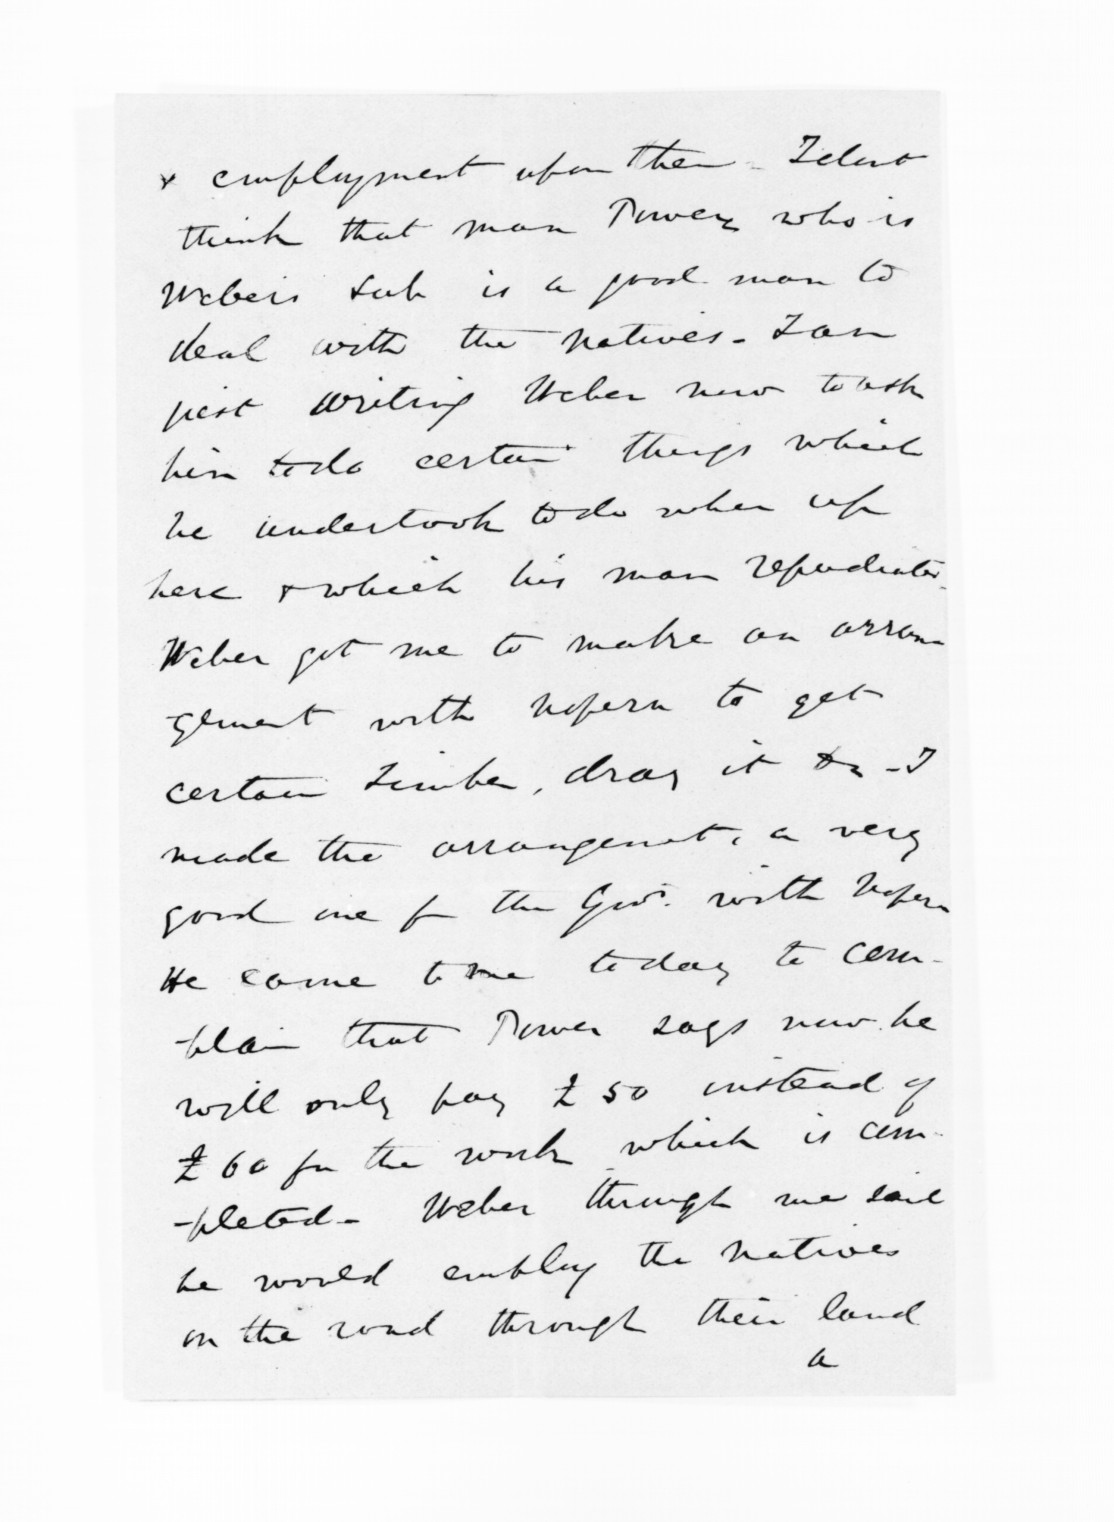 & employment upon them - I dont
think that man Power who is
Webers Sub is a good man to
deal with the Natives - I am
just writing Weber now to ask
him to do certain things which
he undertook to do when up
here & which his man repudiates.
Weber got me to make an arran
-gement with Hopera to get
certain timber, drag it &c - I
made the arrangemt, a very
good one for the Govt. with Hopera
He came to me today to com-
-plain that Power says now he
will only pay £50 instead of
£60 for the work which is com-
-pleted - Weber through me said
he would employ the Natives
on the road through their land
a